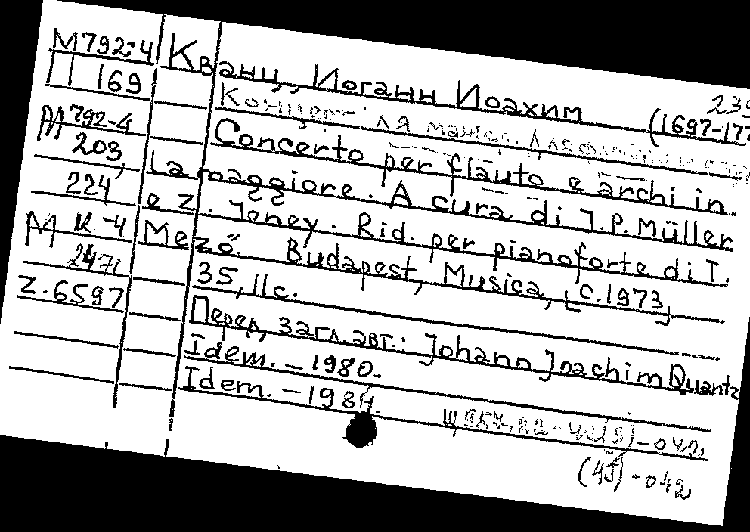 М792-4 Кванц, Иоганн Иоахим 239
П 169 (1697-177
Концерт ля мажор. Для
М 792-4 Concerto per flauto e archi in.
203, La maggiore. A cura di J.P. Müller
224 e Z. Jeney. Rid. per pianoforte di I.
М К-4 Mező. Budapest, Musica, [c. 1973]
2471 35, 11 с.
Z. 6597 Перед. загл. авт.: Johann Joachim Quantz
Idem. – 1980.
Idem. – 1984.
-042
(4Я)-042